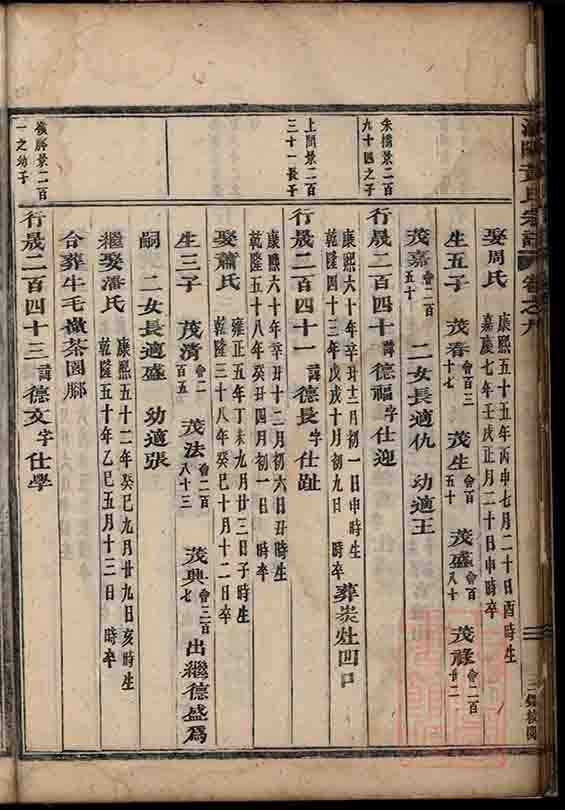 黃氏宗譜 卷之九
娶周氏 康熙五十五年丙申七月二十日酉時生
嘉慶七年壬戌正月二十日申時卒
生五子 茂春會百三十七 茂生會百五十 茂盛會百八十 茂祿會二百廿二
茂嘉會二百五十 二女長適仇 幼適王
朱橋景二百九十四之子
行晟二百四十 諱德福字仕迎
康熙六十年辛丑十二月初一日申時生
乾隆四十三年戊戌十月初九日 時卒 葬炭灶凹口
上門景二百三十一長子
行晟二百四十一 諱德長字仕趾
康熙六十年辛丑十二月初六日丑時生
乾隆五十八年癸丑四月初一日 時卒
娶蕭氏 雍正五年丁未九月廿三日子時生
乾隆三十八年癸巳十月十二日卒
生三子 茂清會二百五 茂法會二百八十三 茂典會三百七 出繼德盛爲
嗣 二女長適盛 幼適張
繼娶潘氏 康熙五十二年癸巳九月廿九日亥時生
乾隆五十年乙巳五月十三日 時卒
合葬牛毛嶺茶園腳
景二百一之幼子
行晟二百四十三 諱德文字仕學